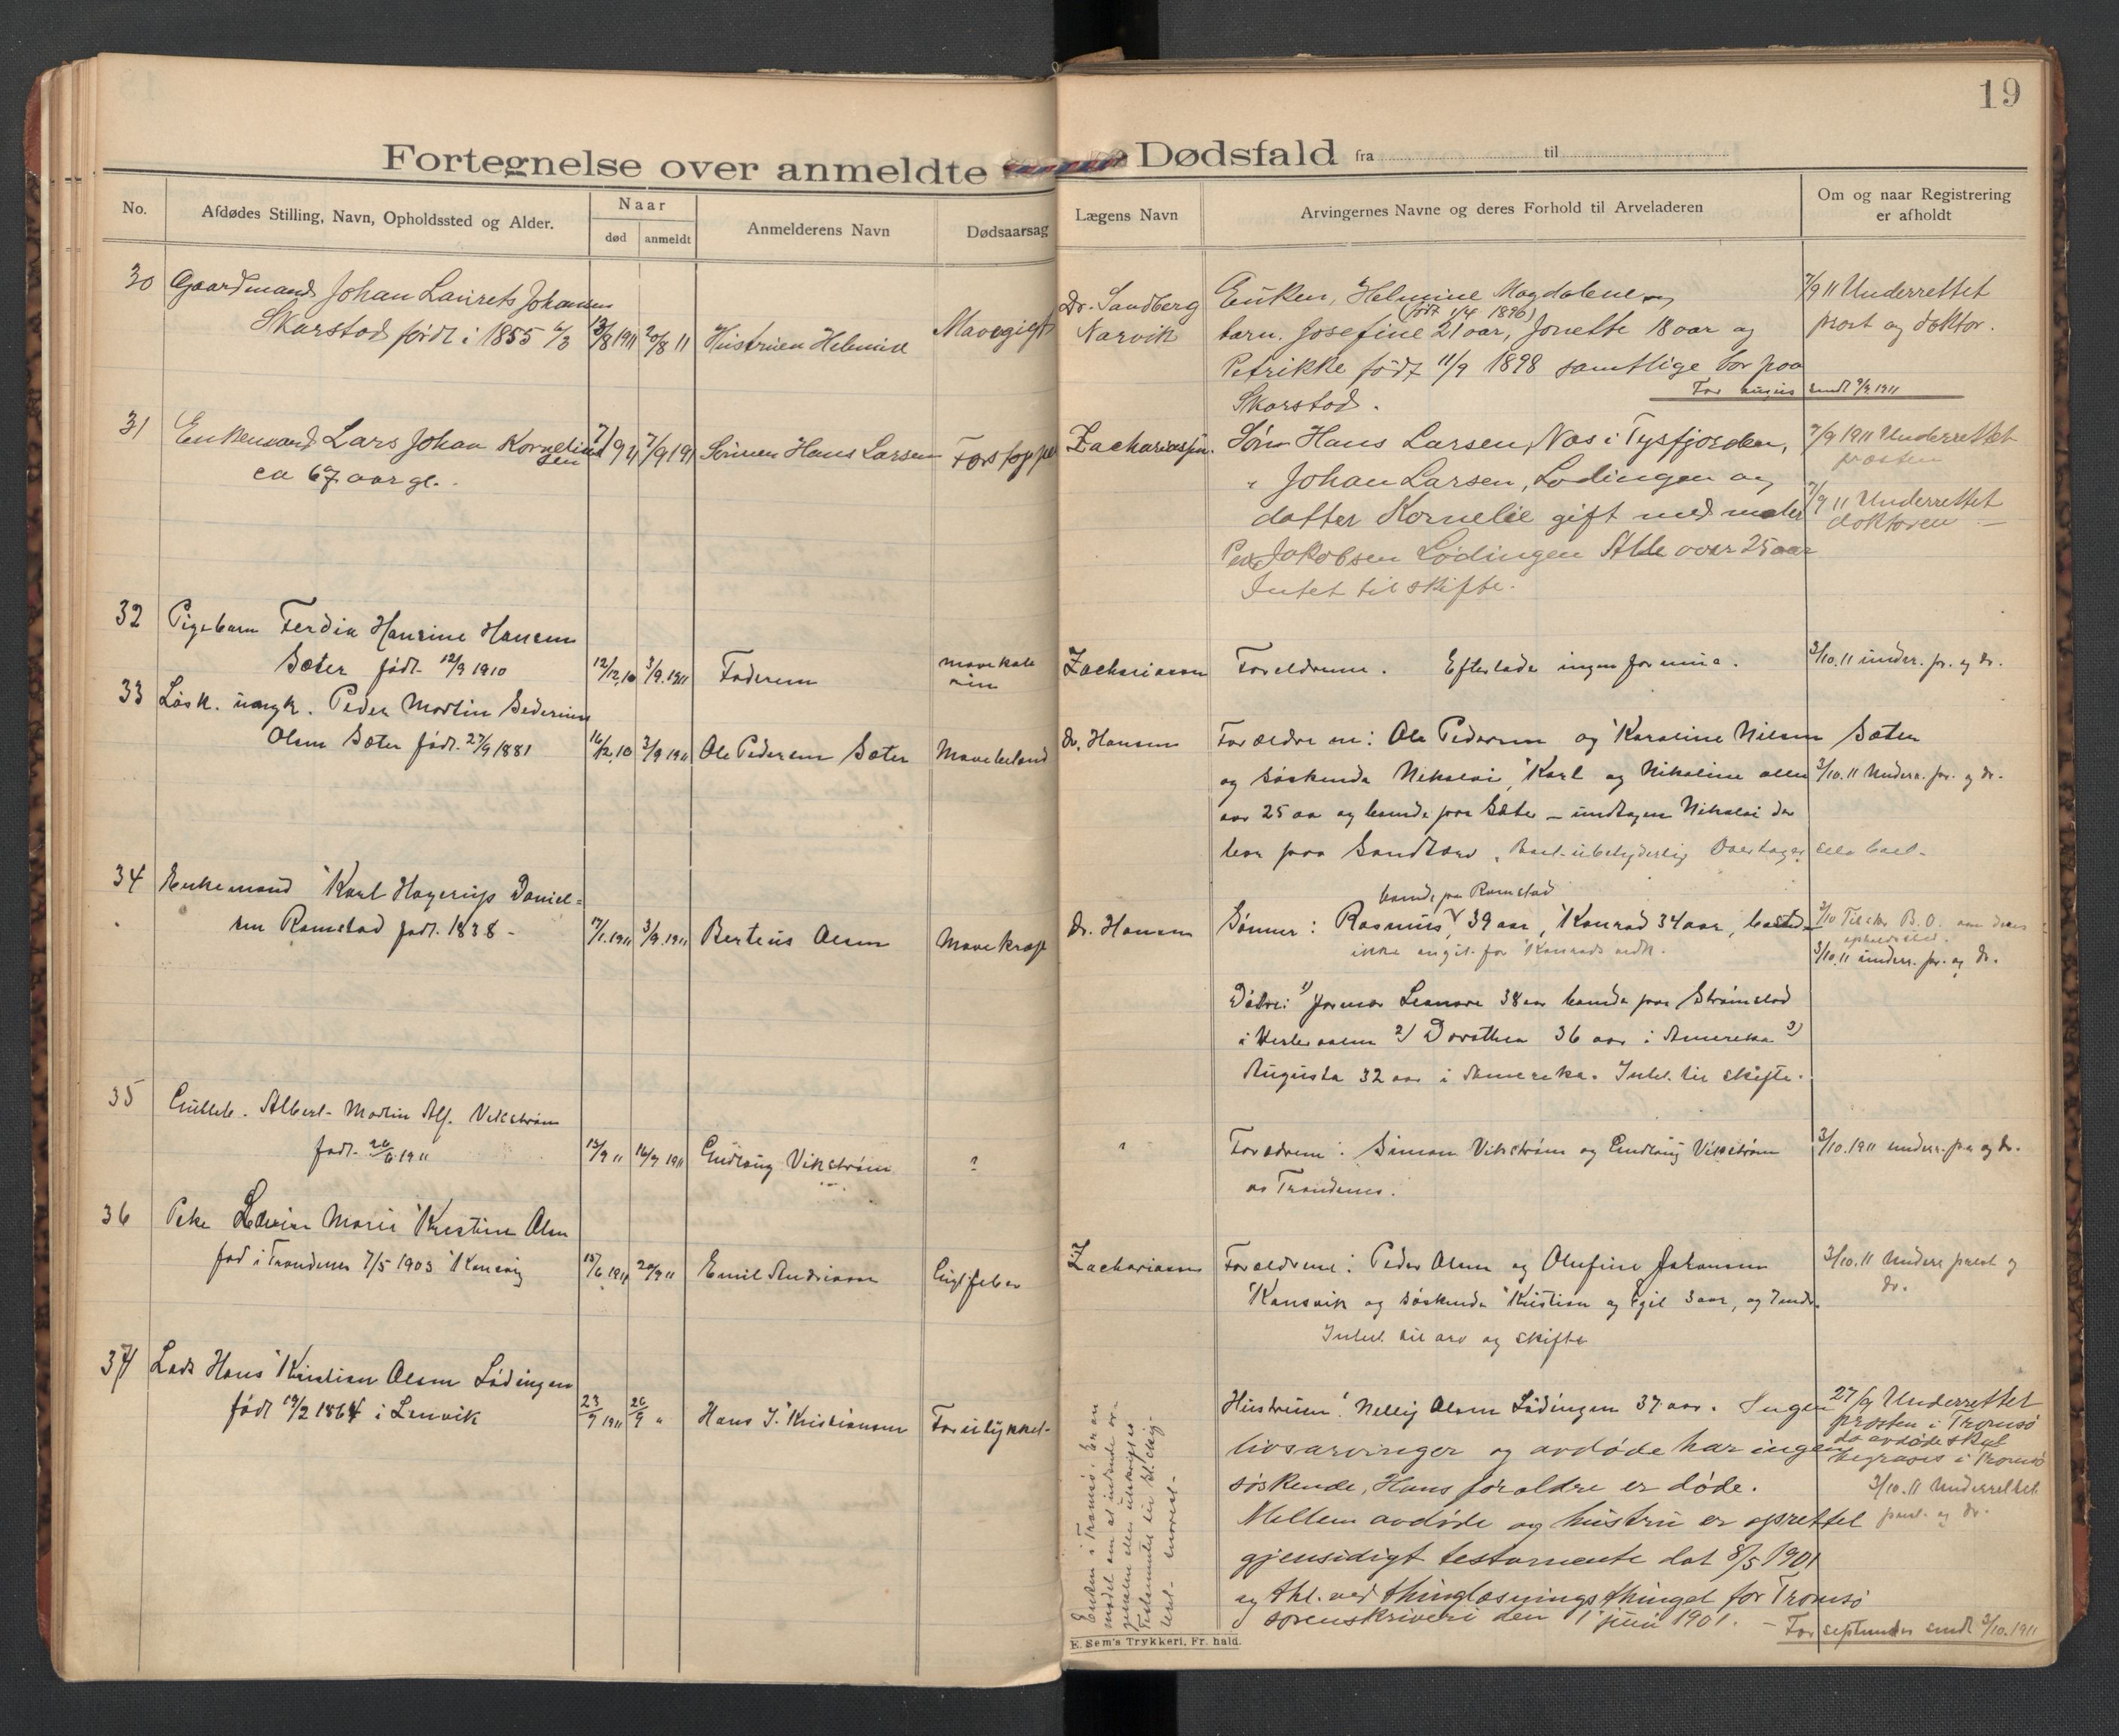 19
Fortegnelse over anmeldte Dødsfald fra til
No.
Afdødes Stilling, Navn, Opholdssted og Alder.
Naar
død anmeldt
Anmelderens Navn
Dødsaarsag
Lægens Navn
Arvingernes Navne og deres Forhold til Arveladeren
Om og naar Registrering
er afholdt
30 Gaardmand Johan Laurets Johansen
Skarstad født i 1855 6/3 13/8 1911 20/8 11 Hustruen Helmine Mavegigt
Dr. Sandberg
Narvik
Enken, Helmine Magdalene og
(født 1/4 1896)
barn. Josefine 21 aar, Jonette 18 aar og
Petrikke født 11/9 1898 samtlige bor paa
Skarstad.
7/9 11 Underrettet
prost og doktor.
For august sendt 9/9 1911
31 Enkemand Lars Johan Kornelius
sen
ca 67 aar gl. 7/9 11 7/9 1911 Sønnen Hans Larsen Forstoppel
Zachariassen.
Søn Hans Larsen, Næs i Tysfjorden,
" Johan Larsen, Lødingen og
datter Kornelie gift med maler
Peder Jakobsen Lødingen Alle over 25 aar
Intet til skifte.
7/9 1911 Underrettet
prosten
7/9 11 Underrettet
doktoren
32 Pigebarn Ferdia Hansine Hansen
Sæter født 12/9 1910 12/12.10 3/9.1911 Faderen
Zachariassen Foreldrene. Efterlade ingen formue.
3/10.11 under. pr. og dr.
33 Løsk. ungk. Peder Martin Sederius
Olsen Sæter født 27/9 1881 16/12.10 3/9 1911 Ole Pedersen Sæter
dr. Hansen Forældrene: Ole Pedersen og Karoline Nilsen Sæter
og søskende Nikolai, Karl og Nikoline alle
over 25 aar og boende paa Sæter – undtagen Nikolai der
bor paa Sandtorv.
3/10.11 Underr. pr. og dr.
34 Enkemand Karl Hagerup Daniel-
sen Ramstad født 1838 - 17/1.1911 3/9.1911 Berteus Olsen Mavekræft
dr. Hansen
boende paa Ramstad
Sønner: Rasmus, 39 aar, Konrad 34 aar,
Døtre: 1) Leonore 38 aar boende paa Strømstad
i Vesteraalen 2) Dorothea 36 aar i Amerika 3)
Augusta 32 aar i Amerika. Intet til skifte.
3/10.11 underr. pr. og dr.
35 Gutteb. Albert Martin Alf. Vikstrøm
født 26/6 1911 13/9 11 16/9 1911 Gudlaug Vikstrøm ?
"
Foreldrene: Simon Vikstrøm og Gudlaug Vikstrøm
av Trondenes.
3/10.1911 underr. pr. og dr.
36 Pike Marie Kristine Olsen
fød i Trondenes 7/5 1903 Kansvig 15/6 1911 20/9 11 Emil Andreassen Gigtfeber
Zachariassen Foreldrene: Peder Olsen og Olufine Johansen
Kansvik og søskende Kristian og Egil 3 aar, og 7 mdr.
Intet til arv og skifte
3/10.11 Underr. prest og
dr.
37 Lods Hans Kristian Olsen Lødingen
født 19/2 1864 i Lenvik 23/9 1911 26/9 " Hans J. Kristiansen Forulykket
Hustruen: Nellig Olsen Lødingen 37 aar. Ingen
livsarvinger og avdøde har ingen
søskende, Hans forældre er døde.
Mellem avdøde og hustru er oprettet
gjensidigt testamente dat 8/5 1901
og thl. ved thinglæsningsthinget for Tromsø
sorenskriveri den 1 juni 1901. –
27/9 Underrettet
prosten i Tromsø
da avdøde skal
begraves i Tromsø
3/10.11 Underrettet
prest. og dr.
For september sendt 3/10.1911
E. Sem's Trykkeri, Fr. hald.